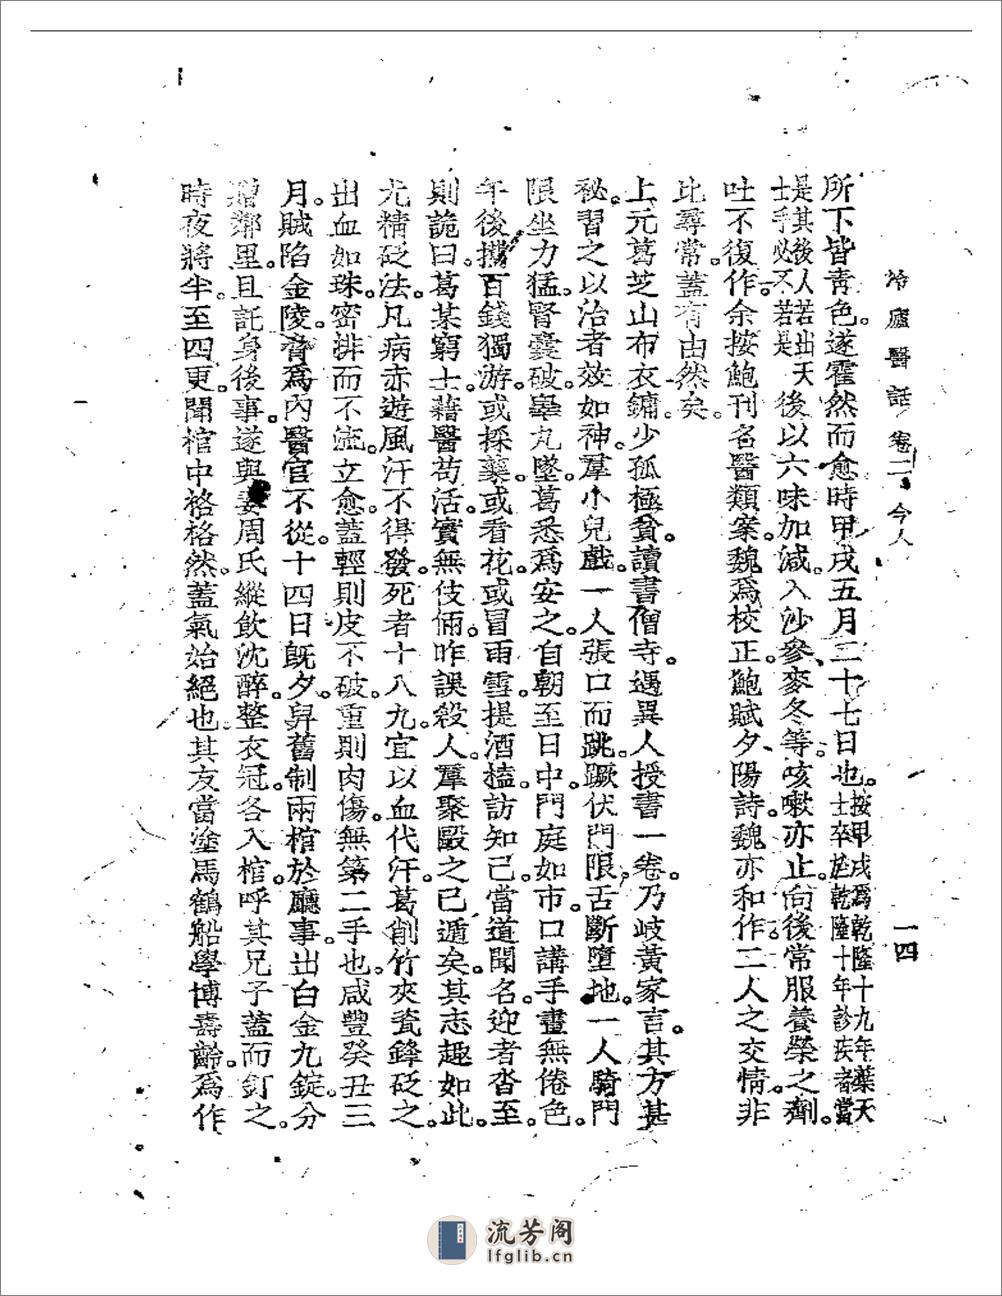 冷廬醫話 卷二 今人 一四
所下皆靑色。遂霍然而愈時甲戌五月二十七日也。按甲戌爲乾隆十九年葉天士卒於乾隆十年診疾者當
是其後人若出天士手必不若是後以六味加減。入沙參、麥冬等。咳嗽亦止。向後常服養榮之劑。
吐不復作。余按鮑刊名醫類案。魏爲校正。鮑賦夕陽詩。魏亦和作。二人之交情。非
比尋常。蓋有由然矣。
上元葛芝山布衣鏞。少孤極貧。讀書僧寺。遇異人授書一卷。乃岐黃家言。其方甚
秘。習之以治者。效如神。羣小兒戲。一人張口而跳。蹶伏門限。舌斷墮地。一人騎門
限坐力猛。腎囊破。睾丸墜。葛悉爲安之。自朝至日中。門庭如市。口講手畫無倦色。
午後。攜百錢獨游。或採藥。或看花。或冒雨雪。提酒榼。訪知己。當道聞名。迎者沓至。
則詭曰。葛某窮士。藉醫苟活。實無伎倆。昨誤殺人。羣聚毆之。已遁矣。其志趣如此。
尤精砭法。凡病赤遊風。汗不得發。死者十八九。宜以血代汗。葛削竹夾瓷鋒砭之。
出血如珠。密排而不流。立愈。蓋輕則皮不破。重則肉傷。無第二手也。咸豐癸丑三
月。賊陷金陵。脅爲內醫官。不從。十四日旣夕。舁舊制兩棺於廳事。出白金九錠。分
贈鄰里。且託身後事。遂與妻周氏縱飲沈醉。整衣冠。各入棺。呼其兄子蓋而釘之。
時夜將半。至四更。聞棺中格格然。蓋氣始絕也。其友當塗馬鶴船學博壽齡。爲作
流芳阁
lfglib.cn